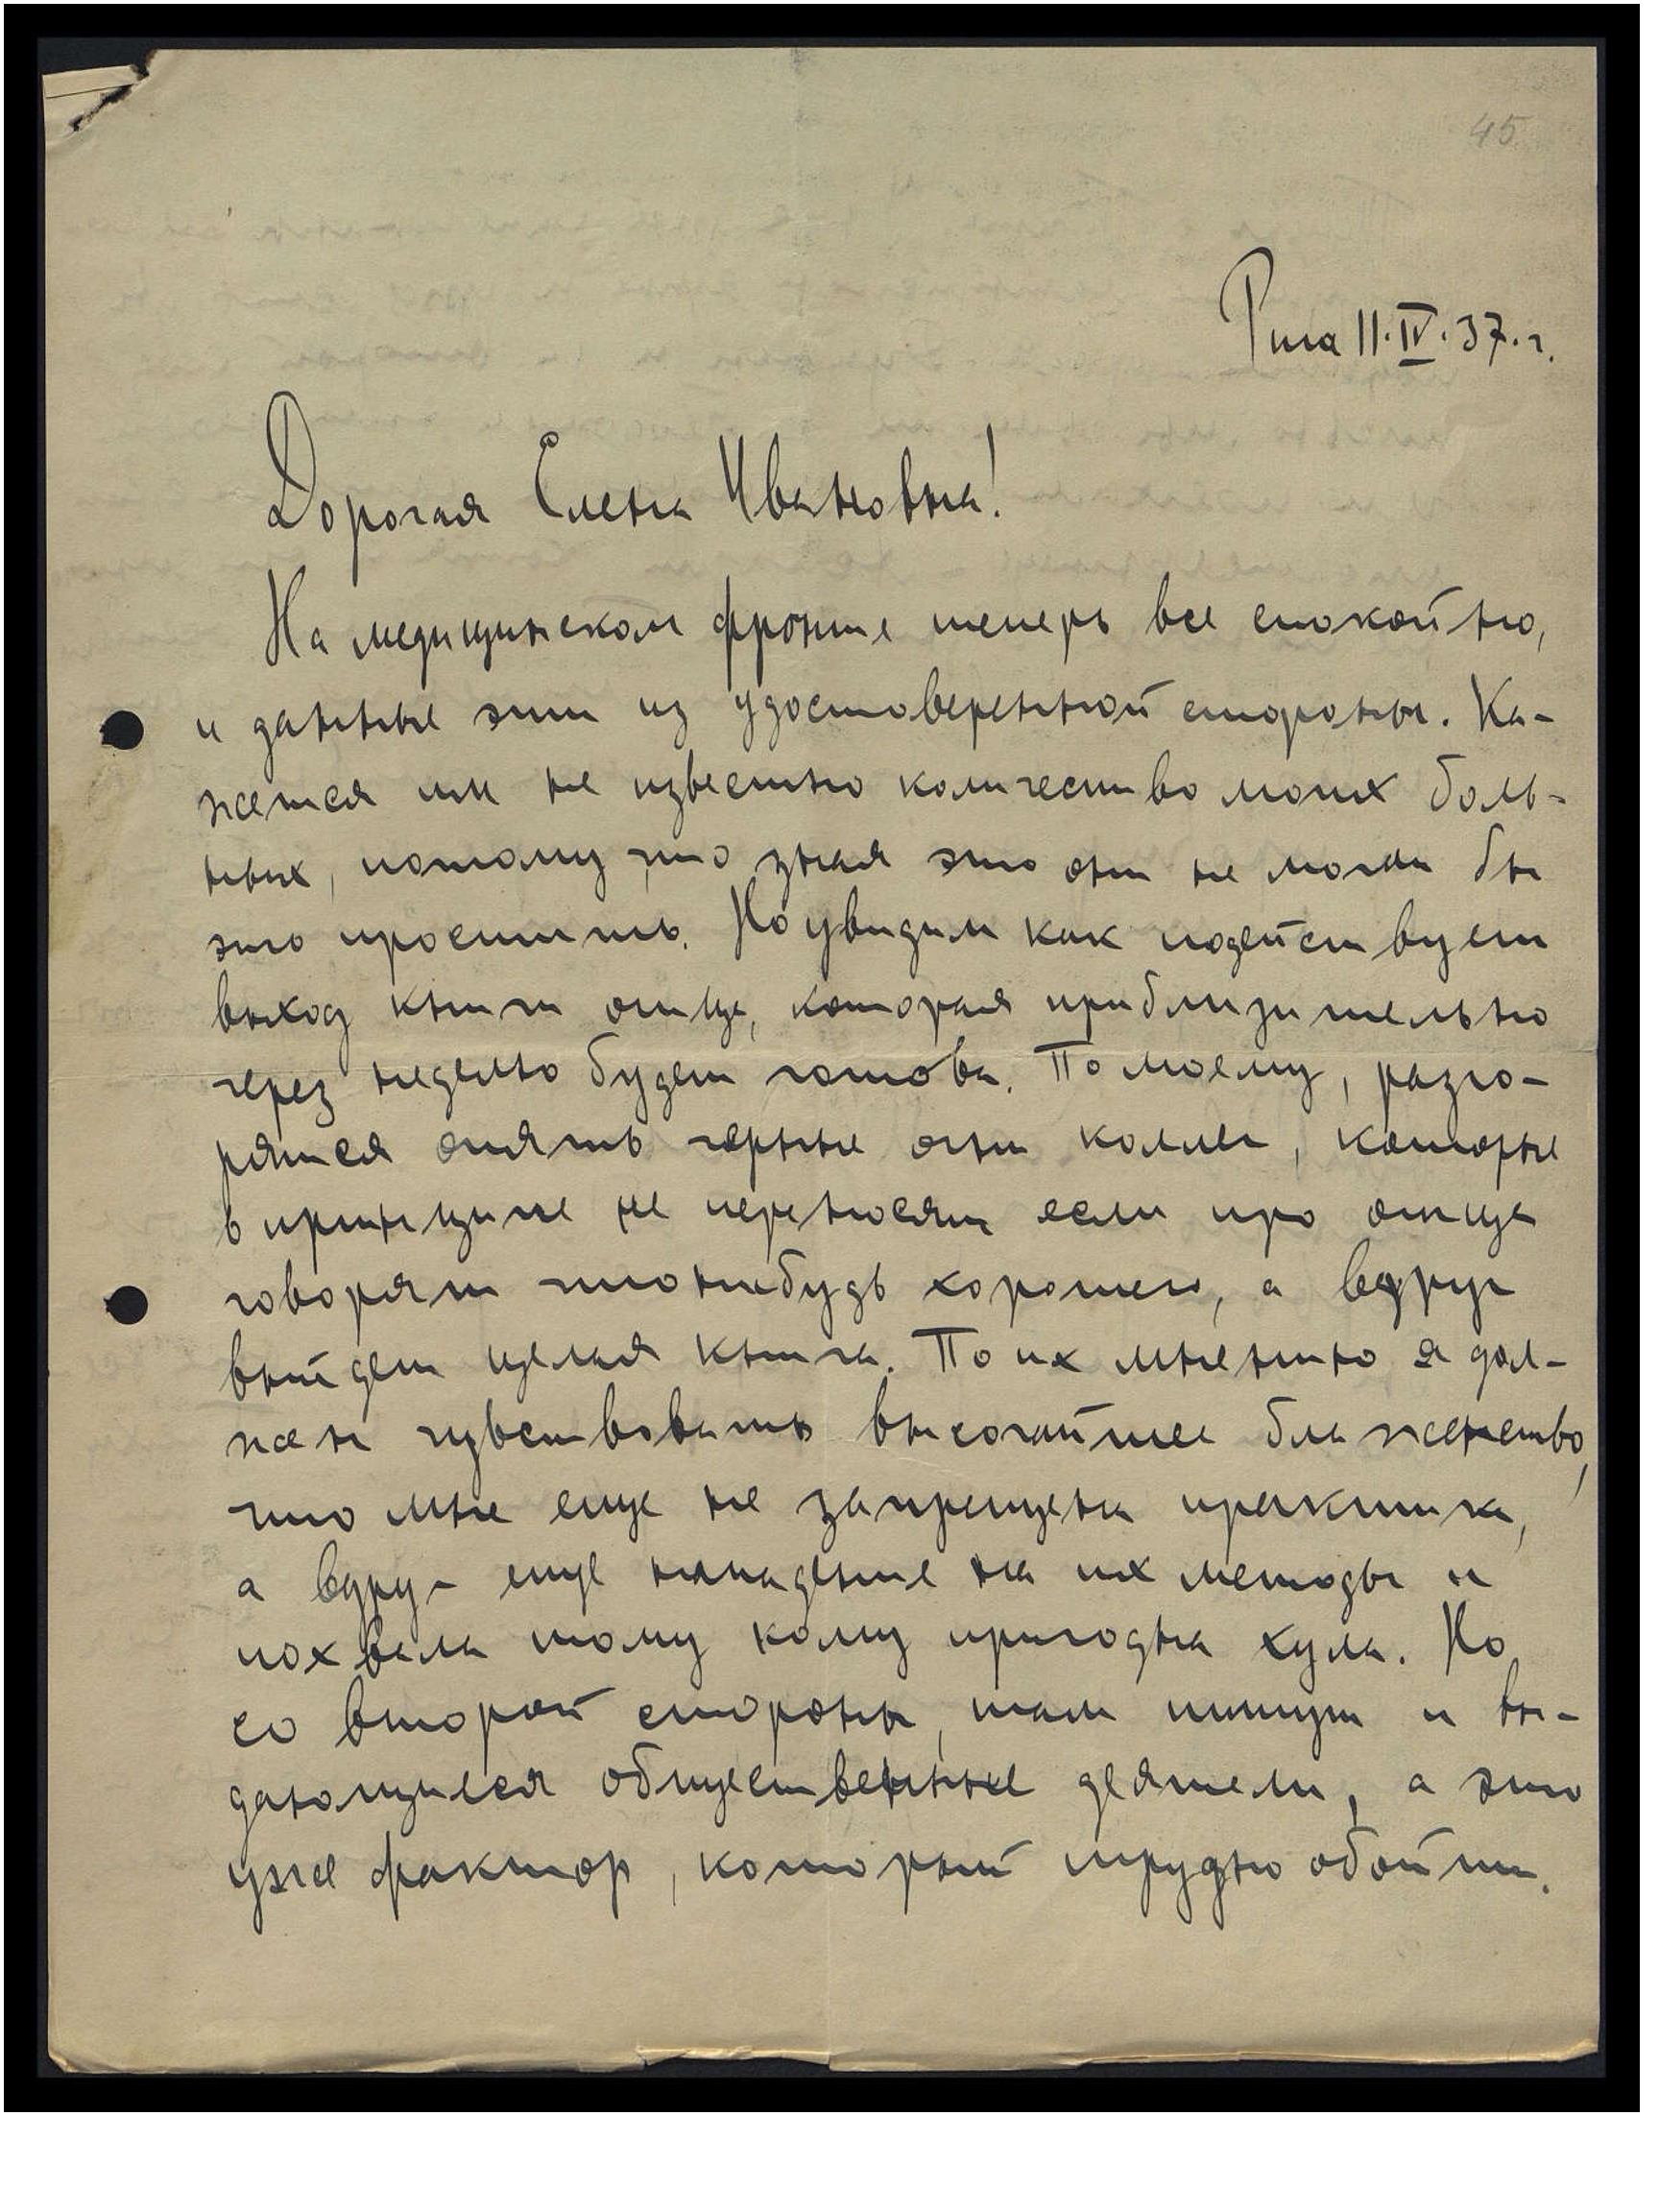 45
Рига 11.IV.37.г.
Дорогая Елена Ивановна!
На медицинском фронте теперь все спокойно,
и данные эти из удостоверенной стороны. Ка-
жется им не известно количество моих боль-
ных, потому что зная это они не могли бы
это простить. Но увидим как подействует
выход книги отца, которая приблизительно
через неделю будет готова. По моему, разго-
рятся опять черные огни коллег, которые
в принципе не переносят если про отца
говорят что нибудь хорошего, а вдруг
выйдет целая книга. По их мнению я дол-
жен чувствовать высочайшее блаженство,
что мне еще не запрещена практика,
а вдруг еще нападение на их методы и
похвала тому кому пригодна хула. Но
со второй стороны, там пишут и вы-
дающиеся общественные деятели, а это
уже фактор, который трудно обойти.